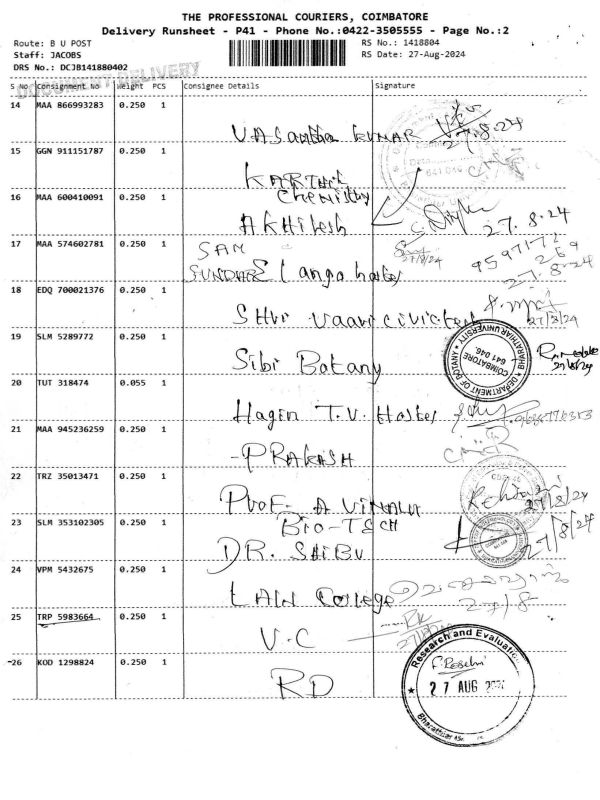 THE PROFESSIONAL COURIERS, COIMBATORE
Delivery Runsheet - P41 - Phone No.:0422-3505555 - Page No.:2
Route: B U POST
RS No.: 1418804
Staff: JACOBS
RS Date: 27-Aug-2024
DRS No.: DCJB141880402
DOCUMENT DELIVERY
S No Consignment No Weight PCS Consignee Details Signature
14 MAA 866993283 0.250 1
VASantha KUMAR 27.8.24
15 GGN 911151787 0.250 1
KARTHIK
Chemistry
641 046
16 MAA 600410091 0.250 1
AKHilesh 27.8.24
17 MAA 574602781 0.250 1
SAM
SUNDHAR Elango hostel
27/8/24
27.8.24
18 EDQ 700021376 0.250 1
SHri vaari civictech 27/8/24
19 SLM 5289772 0.250 1
Sibi Botany
BHARATHIAR UNIVERSITY
DEPARTMENT OF BOTANY
COIMBATORE
641 046.
20 TUT 318474 0.055 1
Hagen T.V. Hostel
21 MAA 945236259 0.250 1
PRAKASH
22 TRZ 35013471 0.250 1
Prof. A Vimala
Bio-TECH
27/8/24
23 SLM 353102305 0.250 1
DR. SHIBU 27/8/24
24 VPM 5432675 0.250 1
LAW College 27/8
25 TRP 5983664 0.250 1
V.C
26 KOD 1298824 0.250 1
RD
Research and Evaluation
27 AUG 2024
Bharathiar